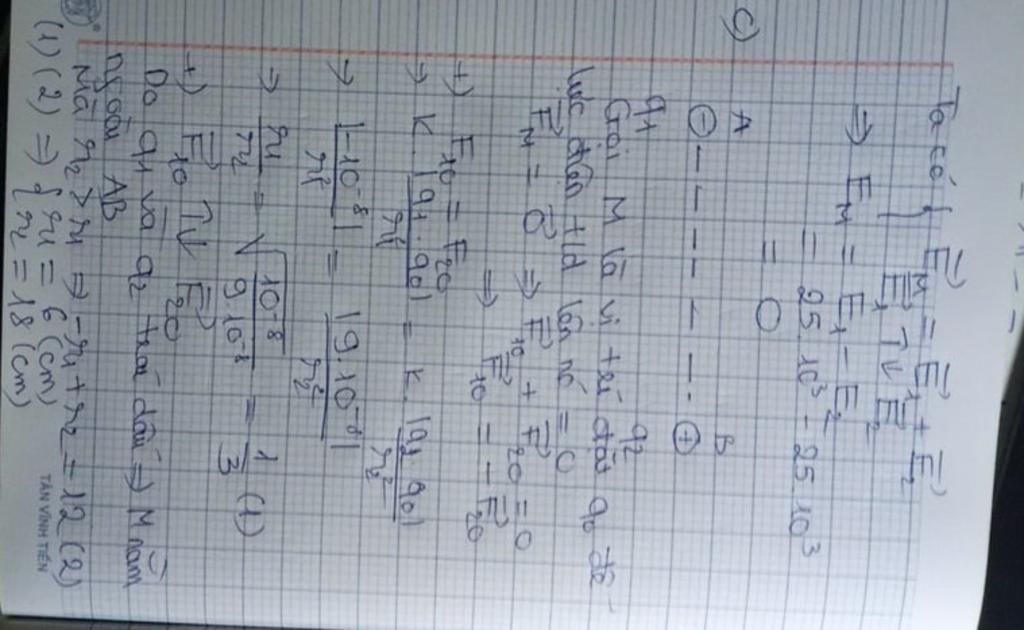 Ta có { E⃗M = E⃗1 + E⃗2
E⃗1 ↑↓ E⃗2
⇒ EM = E1 - E2
= 25.10³ - 25.10³
= 0
c)
A B
⊖ - - - - - - - ⊕
q1 q2
Gọi M là vị trí đặt q0 để
lực điện t/d lên nó = 0
F⃗M = 0⃗ ⇒ F⃗10 + F⃗20 = 0
⇒ F⃗10 = - F⃗20
+) F10 = F20
⇒ K. |q1.q0| / r1² = K. |q2.q0| / r2²
⇒ |-10⁻⁸| / r1² = |9.10⁻⁸| / r2²
⇒ r1/r2 = √(10⁻⁸ / 9.10⁻⁸) = 1/3 (1)
+) F⃗10 ↑↓ F⃗20
Do q1 và q2 trái dấu ⇒ M nằm
ngoài AB
Mà r2 > r1 ⇒ -r1 + r2 = 12 (2)
(1)(2) ⇒ { r1 = 6 (cm)
r2 = 18 (cm)
TÂN VĨNH TIẾN